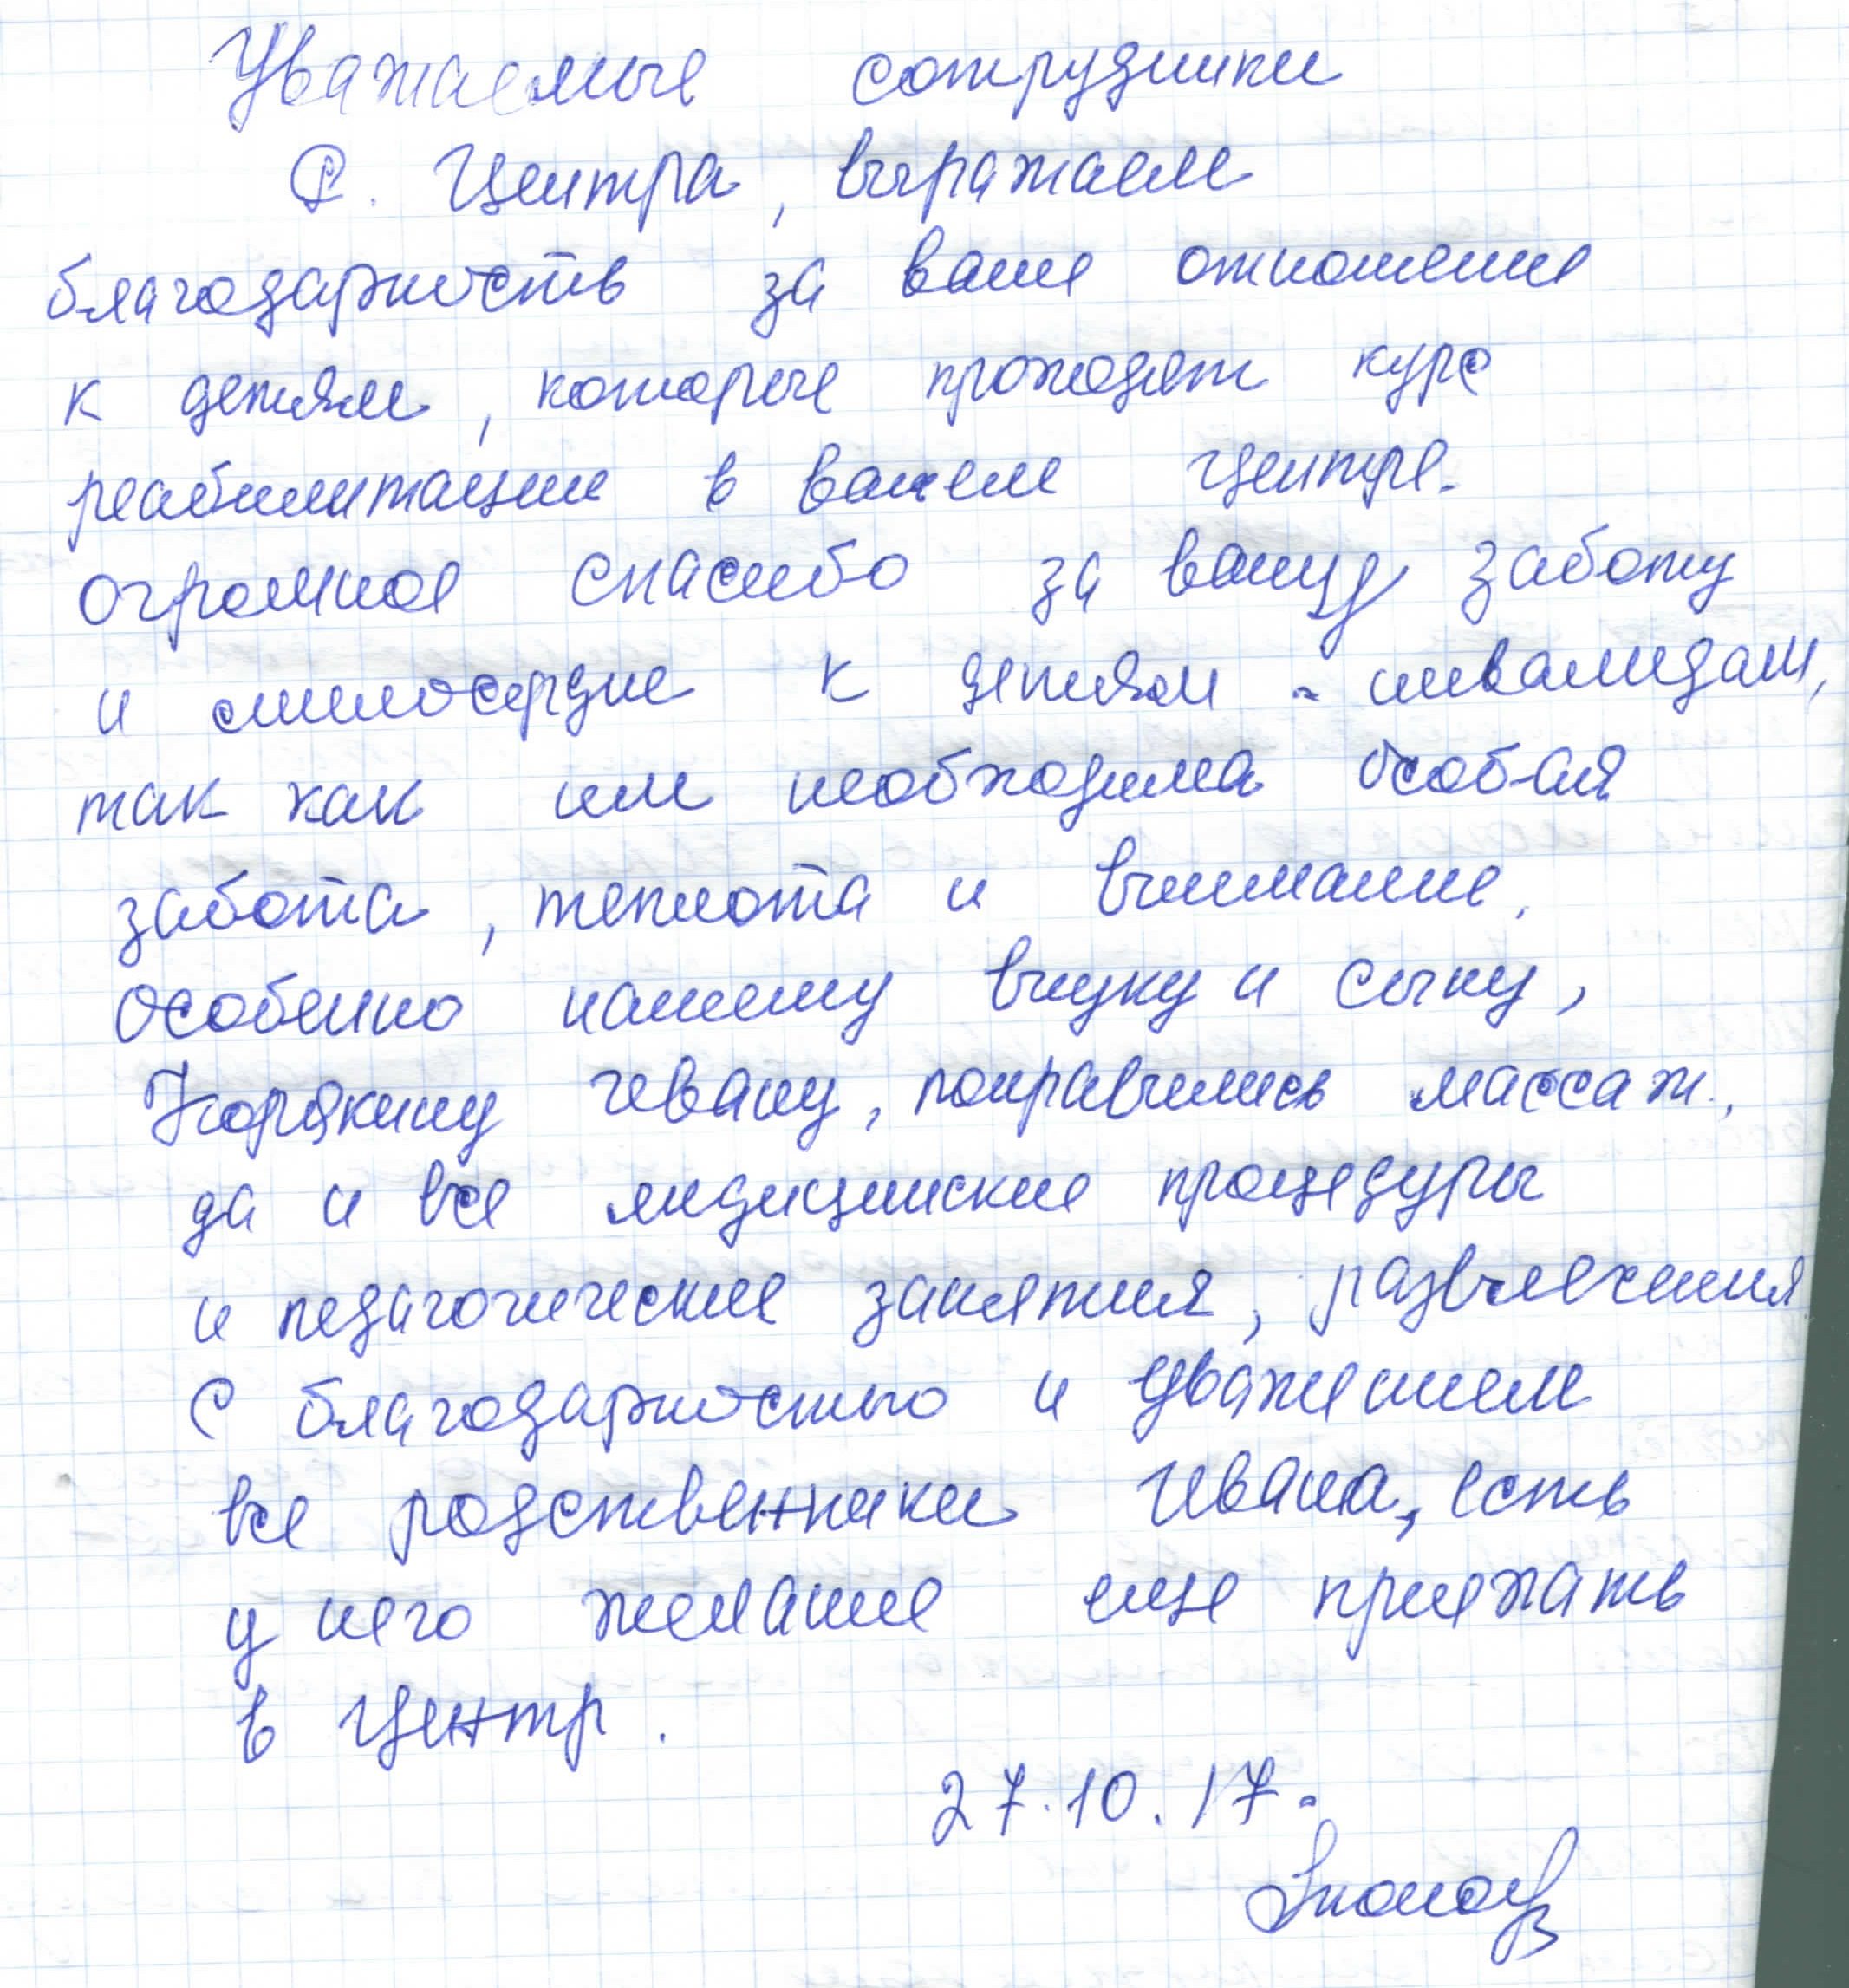 Уважаемые сотрудники
Р. Центра, выражаем
благодарность за ваше отношение
к детям, которые проходят курс
реабилитации в вашем центре.
Огромное спасибо за вашу заботу
и милосердие к детям - инвалидам,
так как им необходима особая
забота, теплота и внимание.
Особенно нашему внуку и сыну,
Корякину Ивану, понравились массаж,
да и все медицинские процедуры
и педагогические занятия, развлечения
С благодарностью и уважением
все родственники Ивана, есть
у него желание еще приехать
в Центр.
27.10.17.